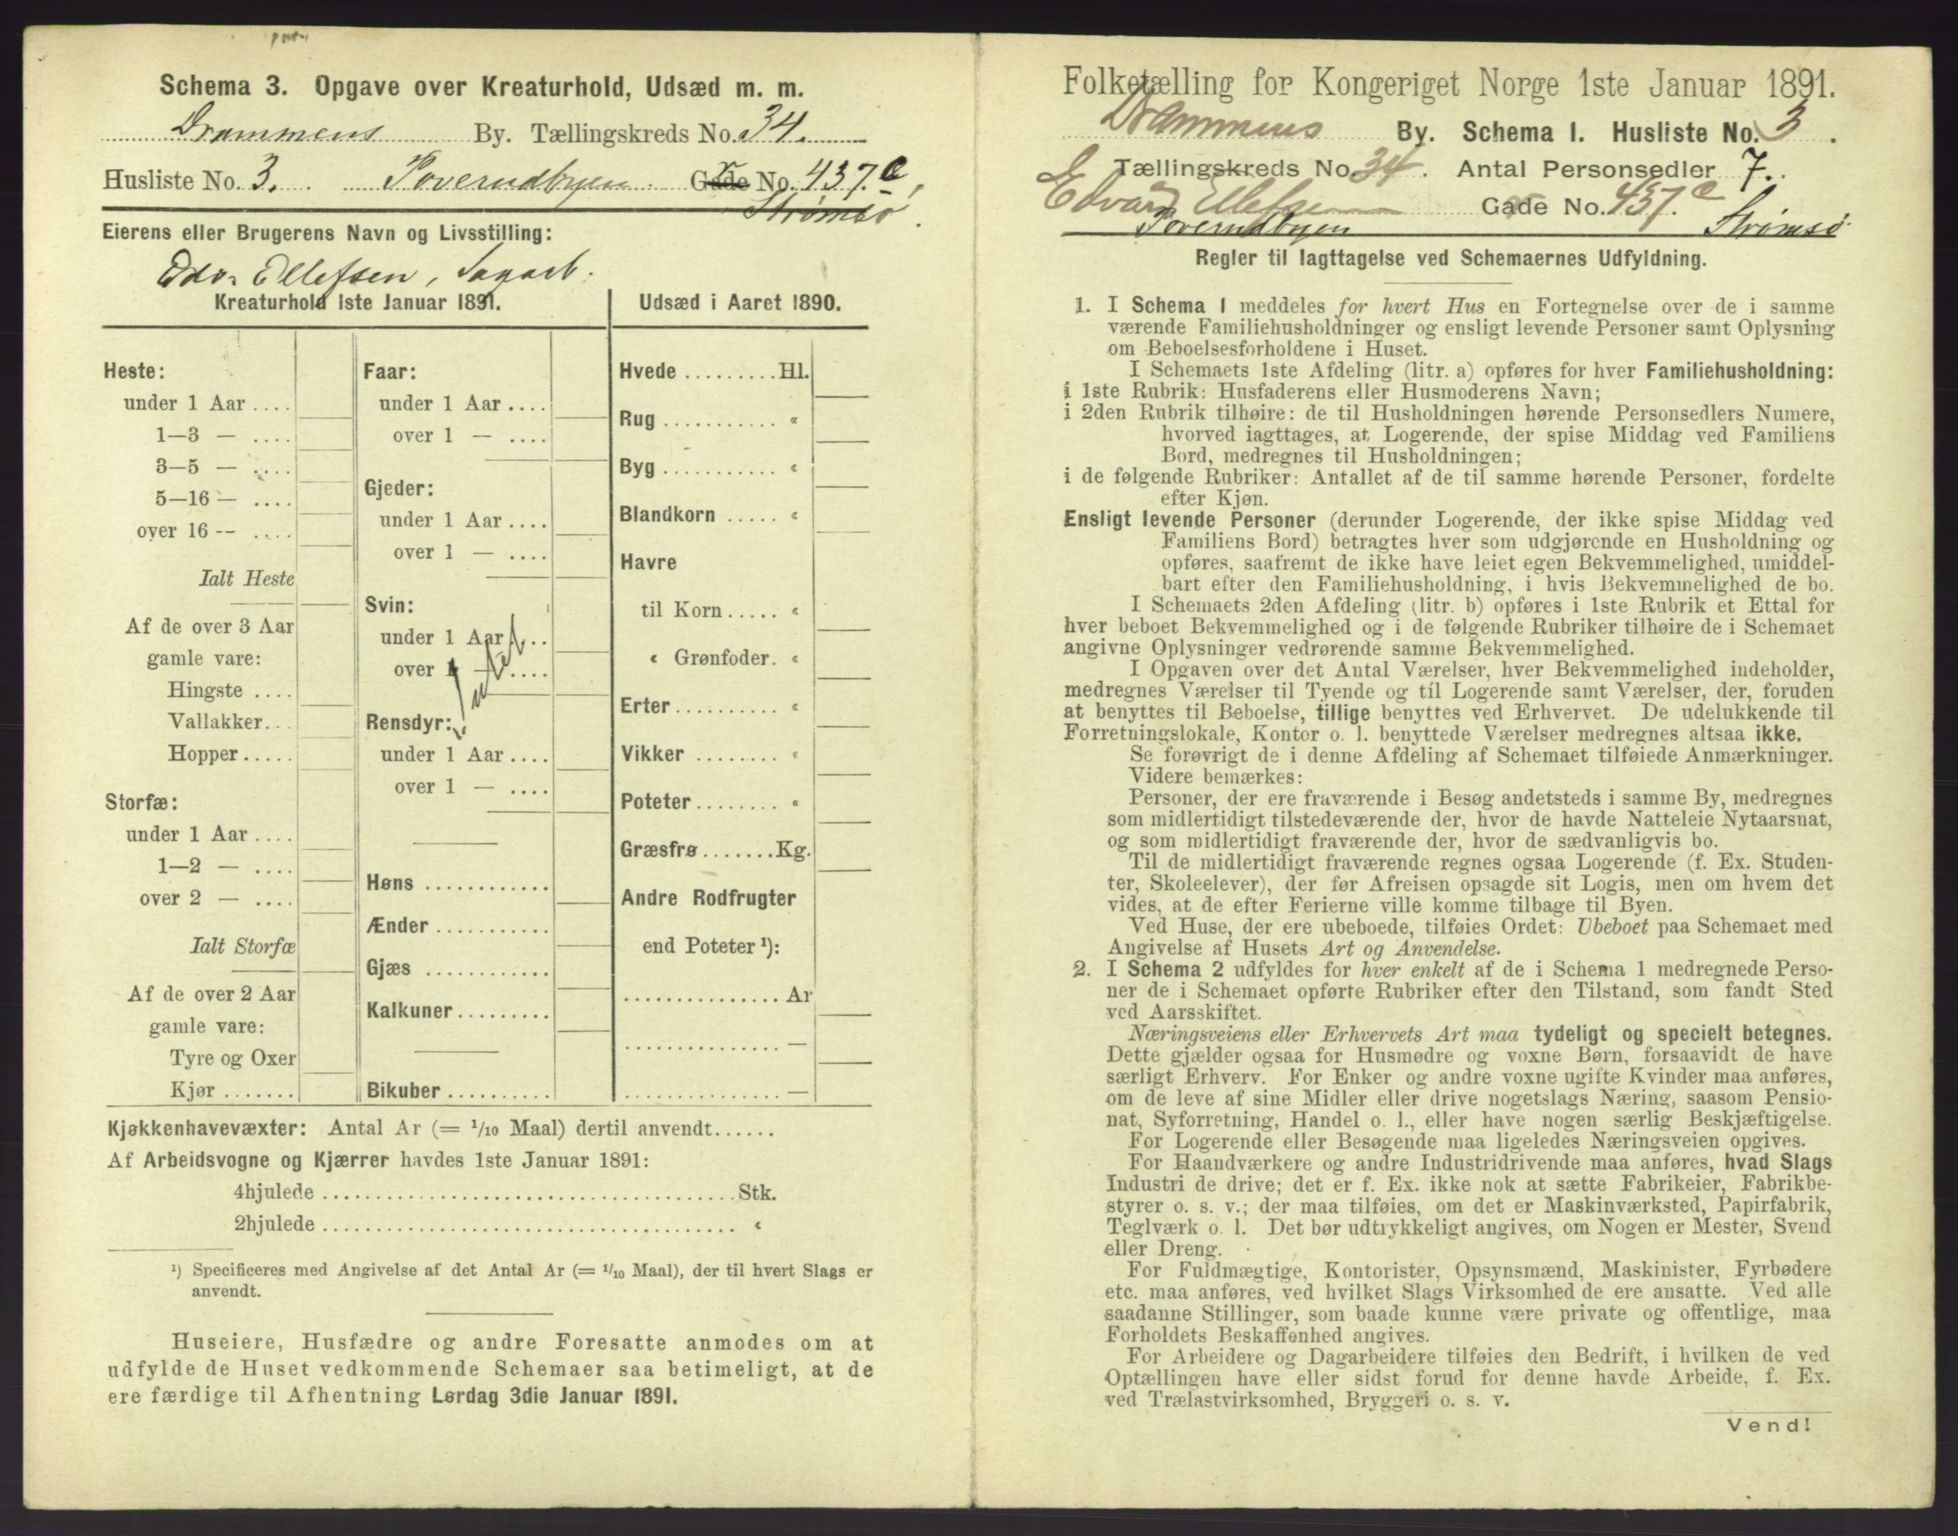 Schema 3. Opgave over Kreaturhold, Udsæd m. m.
Drammens By. Tællingskreds No. 34.
Husliste No. 3. Toverudbyen Gade No. 437.c,
Strømsø.
Eierens eller Brugerens Navn og Livsstilling:
Edv. Ellefsen, Sagarb.
Kreaturhold 1ste Januar 1891.
Heste:
under 1 Aar ....
1—3 — ....
3—5 — ....
5—16 — ....
over 16 -- ....
Ialt Heste
Af de over 3 Aar
gamle vare:
Hingste ....
Vallakker...
Hopper.....
Storfæ:
under 1 Aar ....
1—2 — ....
over 2 — ....
Ialt Storfæ
Af de over 2 Aar
gamle vare:
Tyre og Oxer
Kjør .......
Faar:
under 1 Aar ....
over 1 — ....
Gjeder:
under 1 Aar ....
over 1 — ....
Svin:
under 1 Aar ....
over 1 — ....
Intet
Rensdyr:
under 1 Aar ....
over 1 — ....
Høns ............
Ænder ...........
Gjæs ............
Kalkuner.........
Bikuber ..........
Udsæd i Aaret 1890.
Hvede .........Hl.
Rug ........... «
Byg ........... «
Blandkorn ..... «
Havre
til Korn ..... «
« Grønfoder. «
Erter.......... «
Vikker ........ «
Poteter ........ «
Græsfrø.......Kg.
Andre Rodfrugter
end Poteter ¹):
............... Ar
............... —
............... —
Kjøkkenhavevæxter: Antal Ar (= 1/10 Maal) dertil anvendt......
Af Arbeidsvogne og Kjærrer havdes 1ste Januar 1891:
4hjulede .......................................Stk.
2hjulede ....................................... «
¹) Specificeres med Angivelse af det Antal Ar (= 1/10 Maal), der til hvert Slags er
anvendt.
Huseiere, Husfædre og andre Foresatte anmodes om at
udfylde de Huset vedkommende Schemaer saa betimeligt, at de
ere færdige til Afhentning Lørdag 3die Januar 1891.
Folketælling for Kongeriget Norge 1ste Januar 1891.
Drammens By. Schema I. Husliste No. 3.
Tællingskreds No. 34. Antal Personsedler 7.
Edvard Ellefsen Gade No. 437.c
Toverudbyen Strømsø.
Regler til Iagttagelse ved Schemaernes Udfyldning.
1. I Schema 1 meddeles for hvert Hus en Fortegnelse over de i samme
værende Familiehusholdninger og ensligt levende Personer samt Oplysning
om Beboelsesforholdene i Huset.
I Schemaets 1ste Afdeling (litr. a) opføres for hver Familiehusholdning:
i 1ste Rubrik: Husfaderens eller Husmoderens Navn;
i 2den Rubrik tilhøire: de til Husholdningen hørende Personsedlers Numere,
hvorved iagttages, at Logerende, der spise Middag ved Familiens
Bord, medregnes til Husholdningen;
i de følgende Rubriker: Antallet af de til samme hørende Personer, fordelte
efter Kjøn.
Ensligt levende Personer (derunder Logerende, der ikke spise Middag ved
Familiens Bord) betragtes hver som udgjørende en Husholdning og
opføres, saafremt de ikke have leiet egen Bekvemmelighed, umiddel-
bart efter den Familiehusholdning, i hvis Bekvemmelighed de bo.
I Schemaets 2den Afdeling (litr. b) opføres i 1ste Rubrik et Ettal for
hver beboet Bekvemmelighed og i de følgende Rubriker tilhøire de i Schemaet
angivne Oplysninger vedrørende samme Bekvemmelighed.
I Opgaven over det Antal Værelser, hver Bekvemmelighed indeholder,
medregnes Værelser til Tyende og til Logerende samt Værelser, der, foruden
at benyttes til Beboelse, tillige benyttes ved Erhvervet. De udelukkende til
Forretningslokale, Kontor o. l. benyttede Værelser medregnes altsaa ikke.
Se forøvrigt de i denne Afdeling af Schemaet tilføiede Anmærkninger.
Videre bemærkes:
Personer, der ere fraværende i Besøg andetsteds i samme By, medregnes
som midlertidigt tilstedeværende der, hvor de havde Natteleie Nytaarsnat,
og som midlertidigt fraværende der, hvor de sædvanligvis bo.
Til de midlertidigt fraværende regnes ogsaa Logerende (f. Ex. Studen-
ter, Skoleelever), der før Afreisen opsagde sit Logis, men om hvem det
vides, at de efter Ferierne ville komme tilbage til Byen.
Ved Huse, der ere ubeboede, tilføies Ordet: Ubeboet paa Schemaet med
Angivelse af Husets Art og Anvendelse.
2. I Schema 2 udfyldes for hver enkelt af de i Schema 1 medregnede Perso-
ner de i Schemaet opførte Rubriker efter den Tilstand, som fandt Sted
ved Aarsskiftet.
Næringsveiens eller Erhvervets Art maa tydeligt og specielt betegnes.
Dette gjælder ogsaa for Husmødre og voxne Børn, forsaavidt de have
særligt Erhverv. For Enker og andre voxne ugifte Kvinder maa anføres,
om de leve af sine Midler eller drive nogetslags Næring, saasom Pensio-
nat, Syforretning, Handel o. l., eller have nogen særlig Beskjæftigelse.
For Logerende eller Besøgende maa ligeledes Næringsveien opgives.
For Haandværkere og andre Industridrivende maa anføres, hvad Slags
Industri de drive; det er f. Ex. ikke nok at sætte Fabrikeier, Fabrikbe-
styrer o. s. v.; der maa tilføies, om det er Maskinværksted, Papirfabrik,
Teglværk o. l. Det bør udtrykkeligt angives, om Nogen er Mester, Svend
eller Dreng.
For Fuldmægtige, Kontorister, Opsynsmænd, Maskinister, Fyrbødere
etc. maa anføres, ved hvilket Slags Virksomhed de ere ansatte. Ved alle
saadanne Stillinger, som baade kunne være private og offentlige, maa
Forholdets Beskaffenhed angives.
For Arbeidere og Dagarbeidere tilføies den Bedrift, i hvilken de ved
Optællingen have eller sidst forud for denne havde Arbeide, f. Ex.
ved Trælastvirksomhed, Bryggeri o. s. v.
Vend!